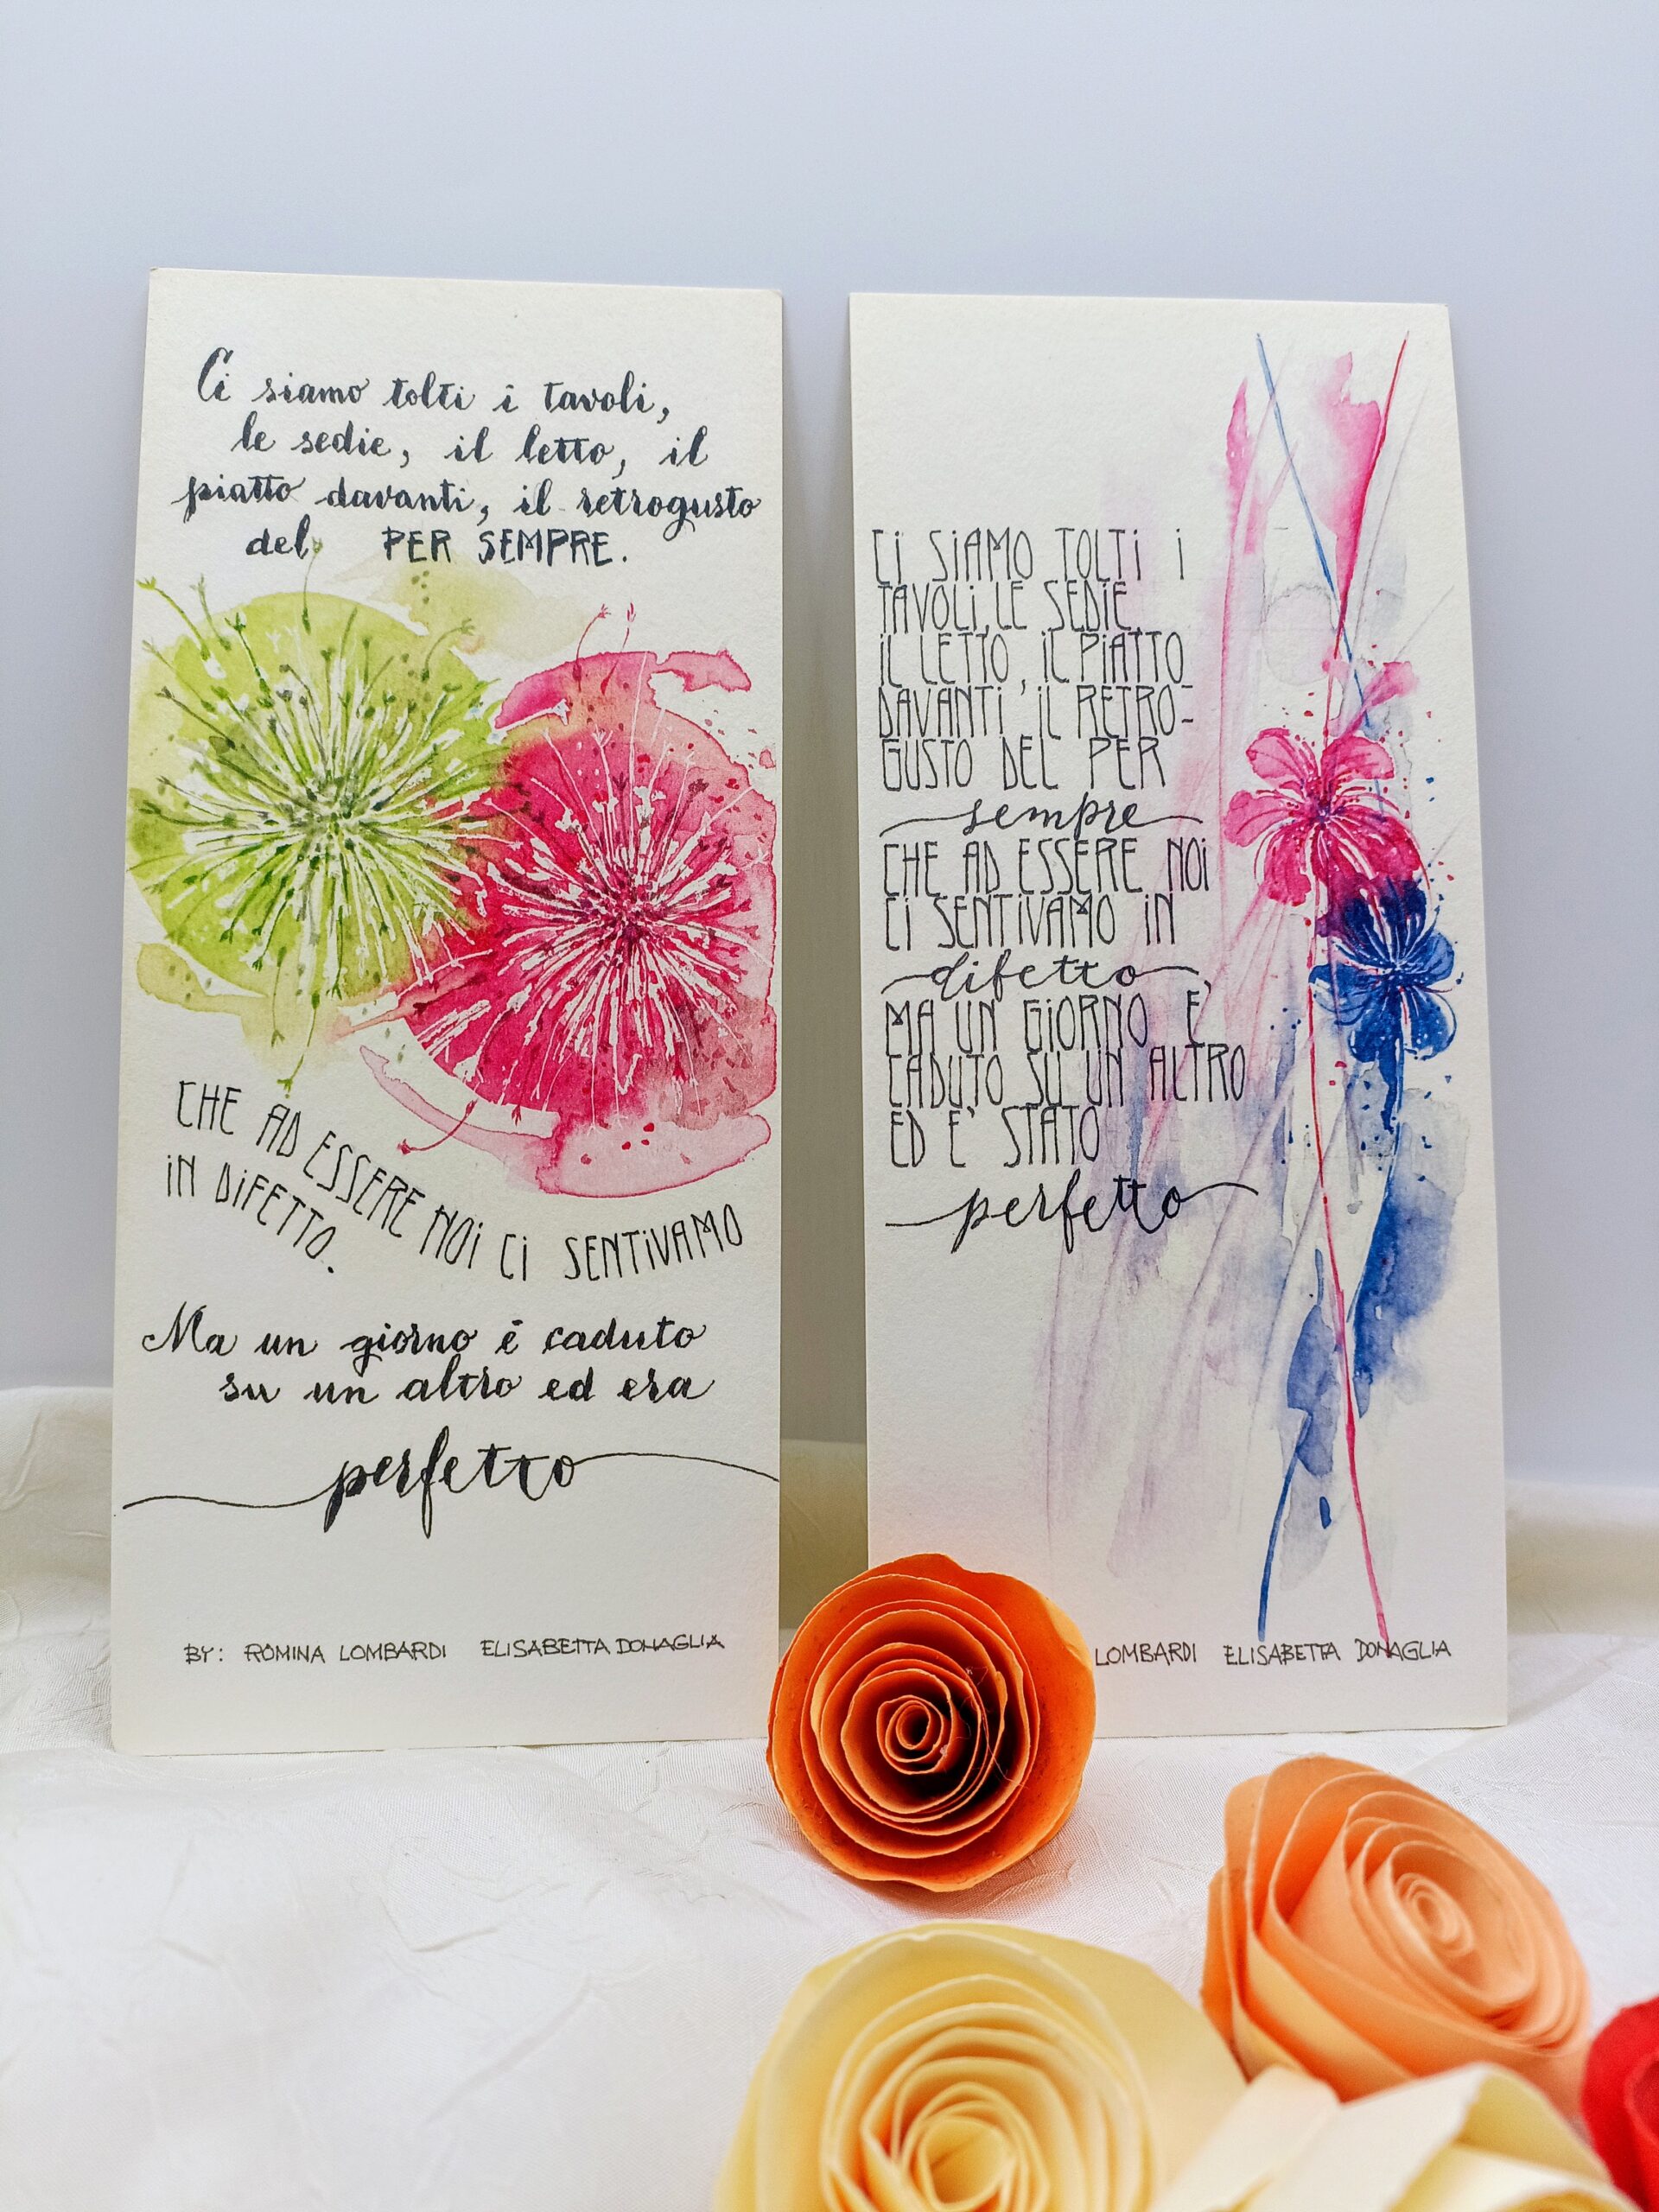 Ci siamo tolti i tavoli,
le sedie, il letto, il
piatto davanti, il retrogusto
del PER SEMPRE.
CHE AD ESSERE NOI CI SENTIVAMO
IN DIFETTO.
Ma un giorno è caduto
su un altro ed era
perfetto
BY: ROMINA LOMBARDI ELISABETTA DONAGLIA
CI SIAMO TOLTI I
TAVOLI, LE SEDIE,
IL LETTO, IL PIATTO
DAVANTI, IL RETRO-
GUSTO DEL PER
sempre
CHE AD ESSERE NOI
CI SENTIVAMO IN
difetto
MA UN GIORNO E'
CADUTO SU UN ALTRO
ED E' STATO
perfetto
LOMBARDI ELISABETTA DONAGLIA